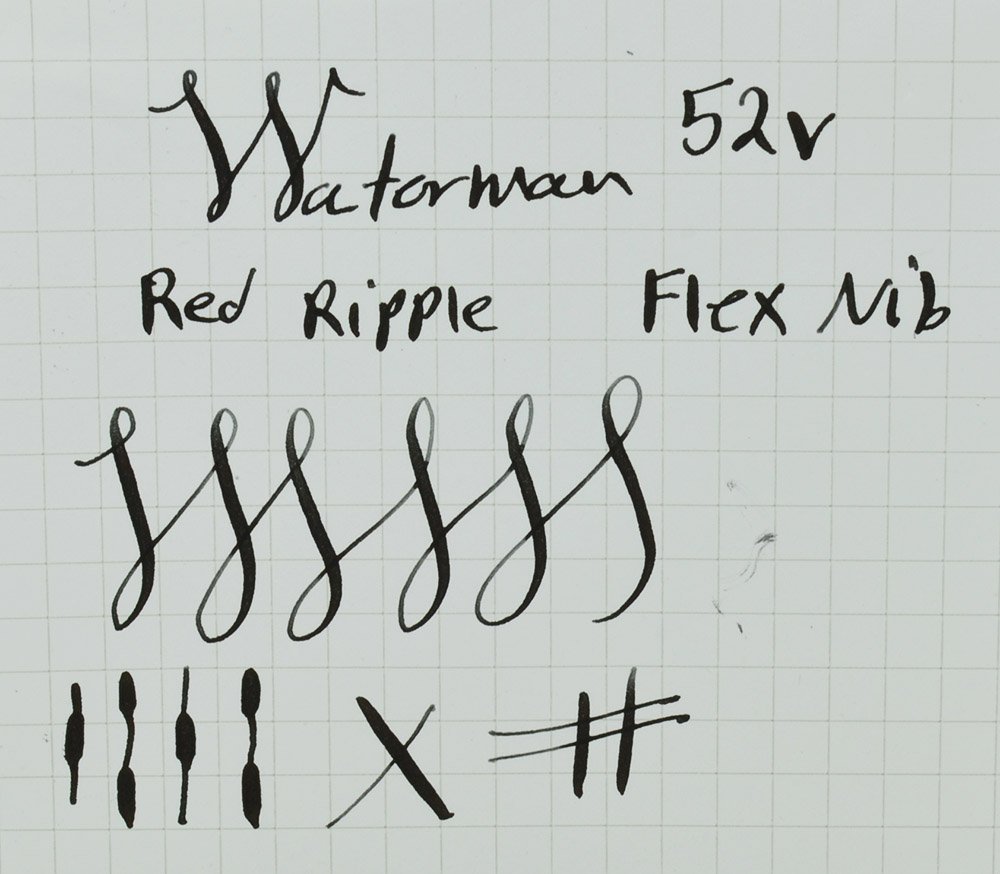 Waterman 52v
Red Ripple Flex Nib